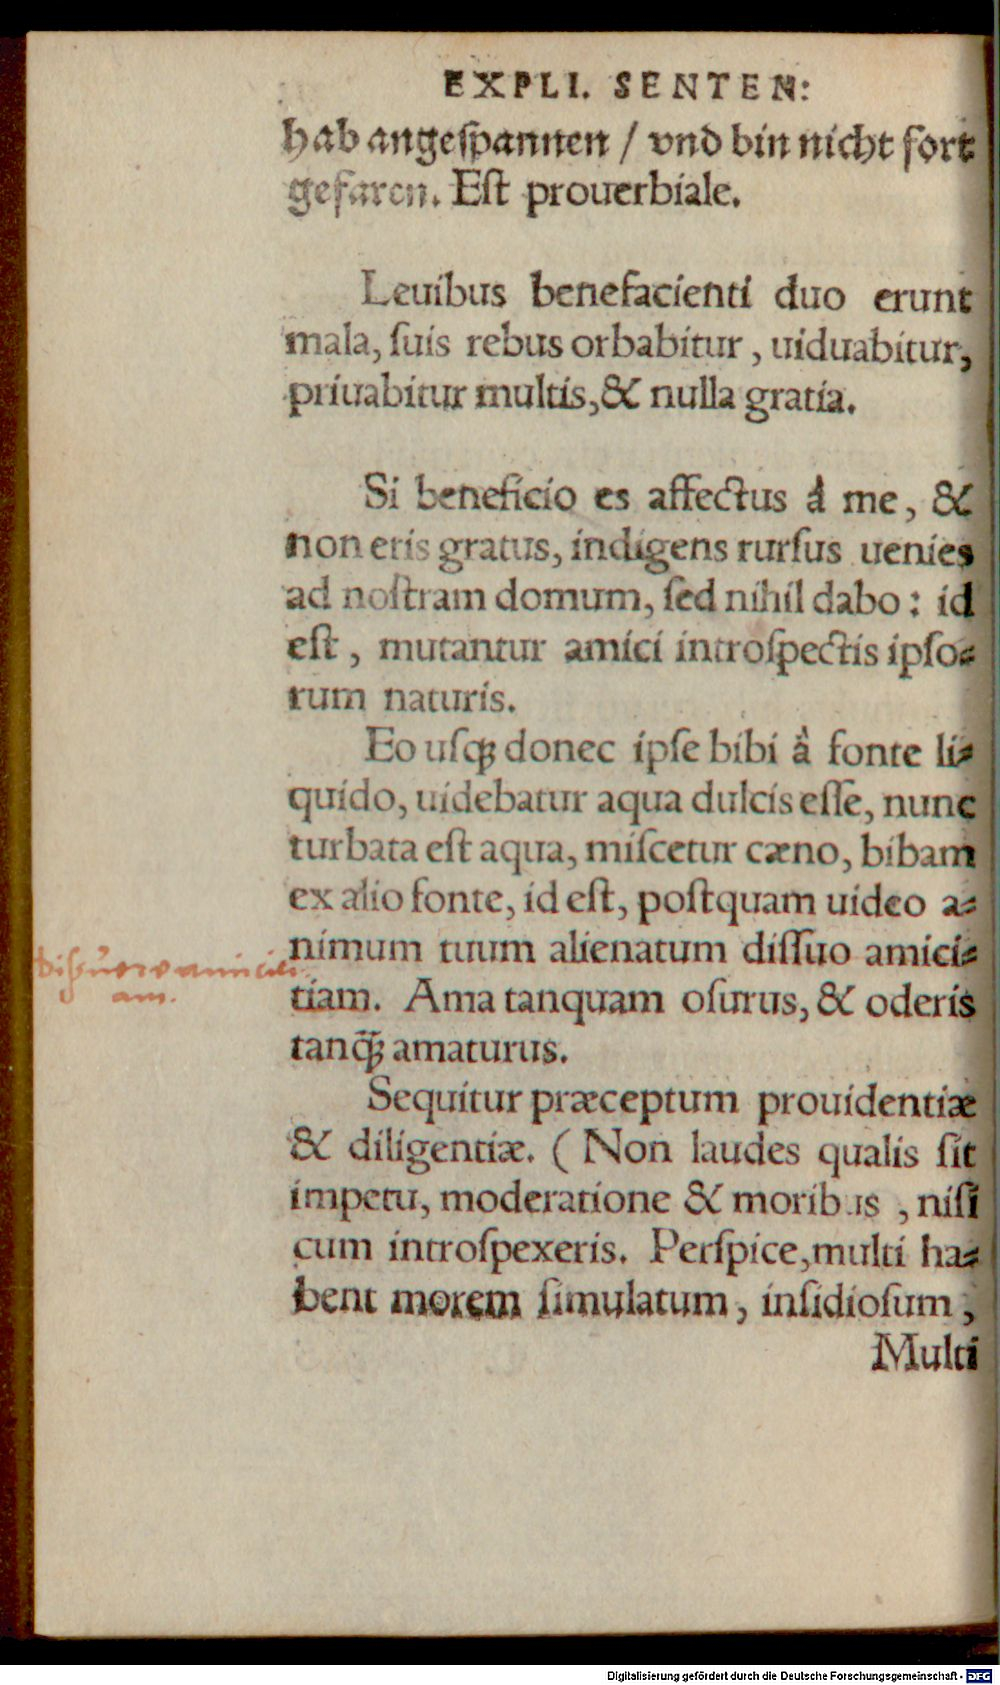 EXPLI. SENTEN:
hab angeſpannen / vnd bin nicht fort
gefaren. Eſt prouerbiale.
Leuibus benefacienti duo erunt
mala, ſuis rebus orbabitur, uiduabitur,
priuabitur multis, & nulla gratia.
Si beneficio es affectus á me, &
non eris gratus, indigens rurſus uenies
ad noſtram domum, ſed nihil dabo: id
eſt, mutantur amici introſpectis ipſo⸗
rum naturis.
Eo uſqꝫ donec ipſe bibi à fonte li⸗
quido, uidebatur aqua dulcis eſſe, nunc
turbata eſt aqua, miſcetur cæno, bibam
ex alio fonte, id eſt, poſtquam uideo a⸗
nimum tuum alienatum diſſuo amici⸗
diſſuere amiciti
am.
tiam. Ama tanquam oſurus, & oderis
tanq̃ꝫ amaturus.
Sequitur præceptum prouidentiæ
& diligentiæ. (Non laudes qualis ſit
impetu, moderatione & moribus, niſi
cum introſpexeris. Perſpice, multi ha⸗
bent morem ſimulatum, inſidioſum,
Multi
Digitalisierung gefördert durch die Deutsche Forschungsgemeinschaft - DFG